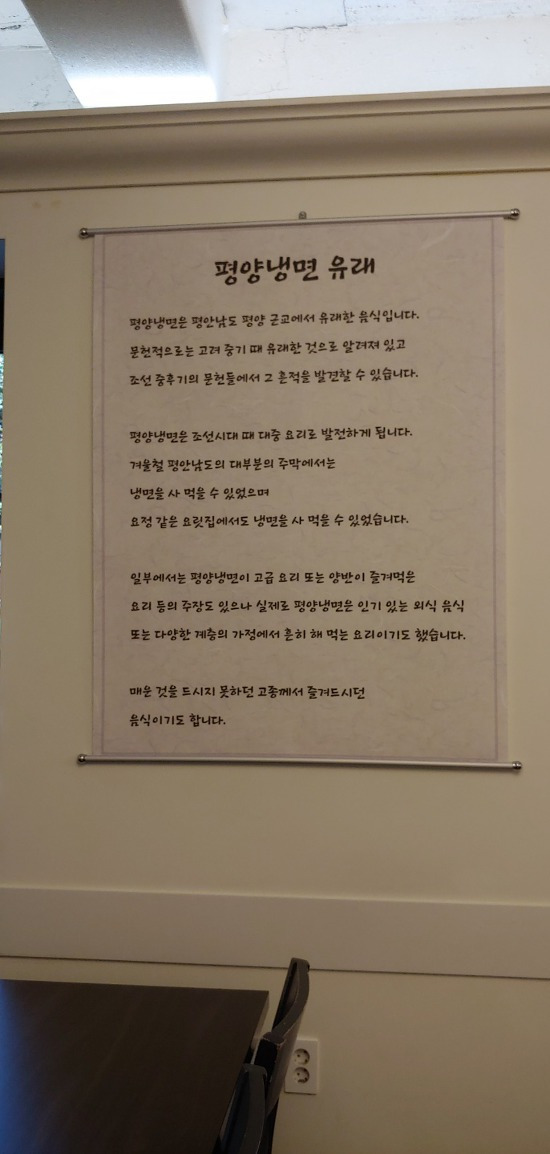 평양냉면 유래
평양냉면은 평안남도 평양 근교에서 유래한 음식입니다.
문헌적으로는 고려 중기 때 유래한 것으로 알려져 있고
조선 중후기의 문헌들에서 그 흔적을 발견할 수 있습니다.
평양냉면은 조선시대 때 대중 요리로 발전하게 됩니다.
겨울철 평안남도의 대부분의 주막에서는
냉면을 사 먹을 수 있었으며
요정 같은 요릿집에서도 냉면을 사 먹을 수 있었습니다.
일부에서는 평양냉면이 고급 요리 또는 양반이 즐겨먹은
요리 등의 주장도 있으나 실제로 평양냉면은 인기 있는 외식 음식
또는 다양한 계층의 가정에서 흔히 해 먹는 요리이기도 했습니다.
매운 것을 드시지 못하던 고종께서 즐겨드시던
음식이기도 합니다.